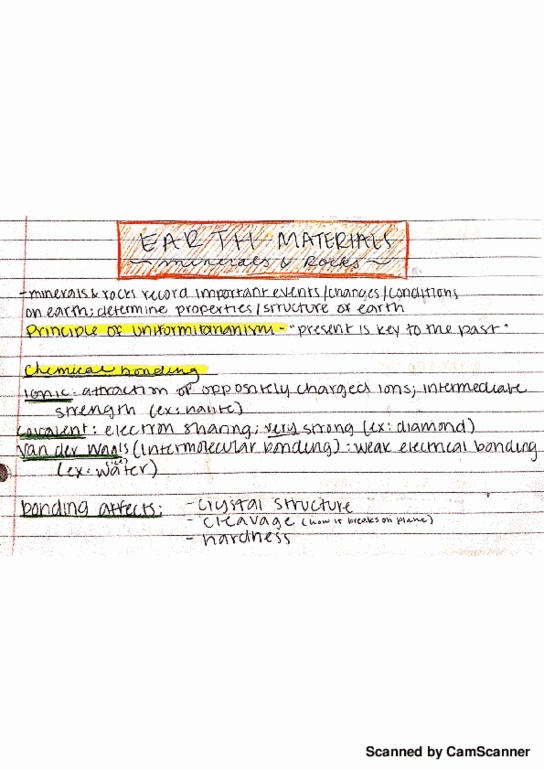 EARTH MATERIALS
~ minerals & Rocks ~
-minerals & rocks record important events/changes/conditions
on earth; determine properties/structure of earth
Principle of uniformitarianism - "present is key to the past"
Chemical bonding
Ionic: attraction of oppositely charged ions; intermediate
strength (ex: halite)
Covalent: electron sharing; very strong (ex: diamond)
Van der Waals (intermolecular bonding): weak electrical bonding
(ex: water)
bonding affects: - crystal structure
- cleavage (how it breaks on plane)
- hardness
Scanned by CamScanner